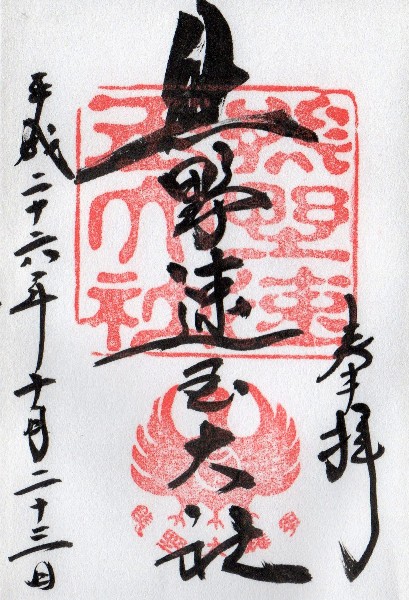 奉拝
熊野速玉大社
平成二十六年十月二十三日
熊野速玉大社